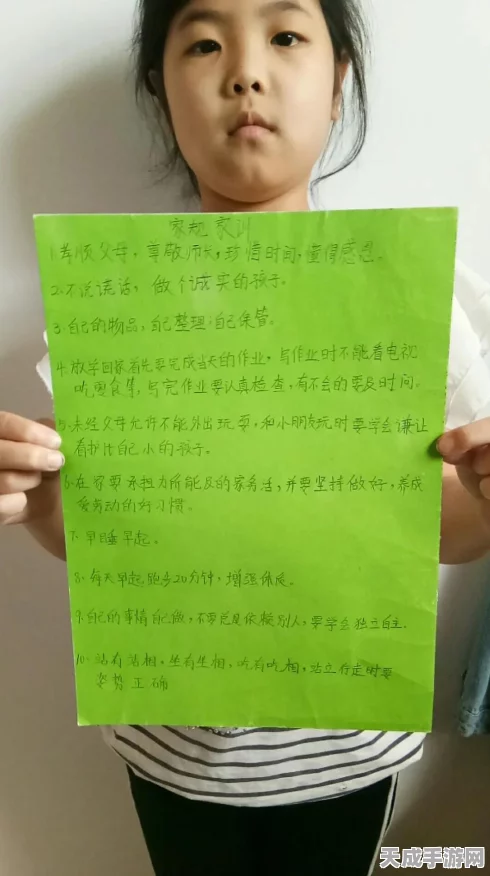 家规 家训
1.孝顺父母，尊敬师长，珍惜时间，懂得感恩。
2.不说谎话，做个诚实的孩子。
3.自己的物品，自己整理，自己保管。
4.放学回家首先要完成当天的作业，写作业时不能看电视
吃零食等，写完作业要认真检查，有不会的要及时问。
5.未经父母允许不能外出玩耍，和小朋友玩时要学会谦让
看护比自己小的孩子。
6.在家要承担力所能及的家务活，并要坚持做好，养成
爱劳动的好习惯。
7.早睡早起。
8.每天早起跑步20分钟，增强体质。
9.自己的事情自己做，不要总是依赖别人，要学会独立自主.
10.站有站相，坐有坐相，吃有吃相，站立行走时要
姿势正确
天成手游网